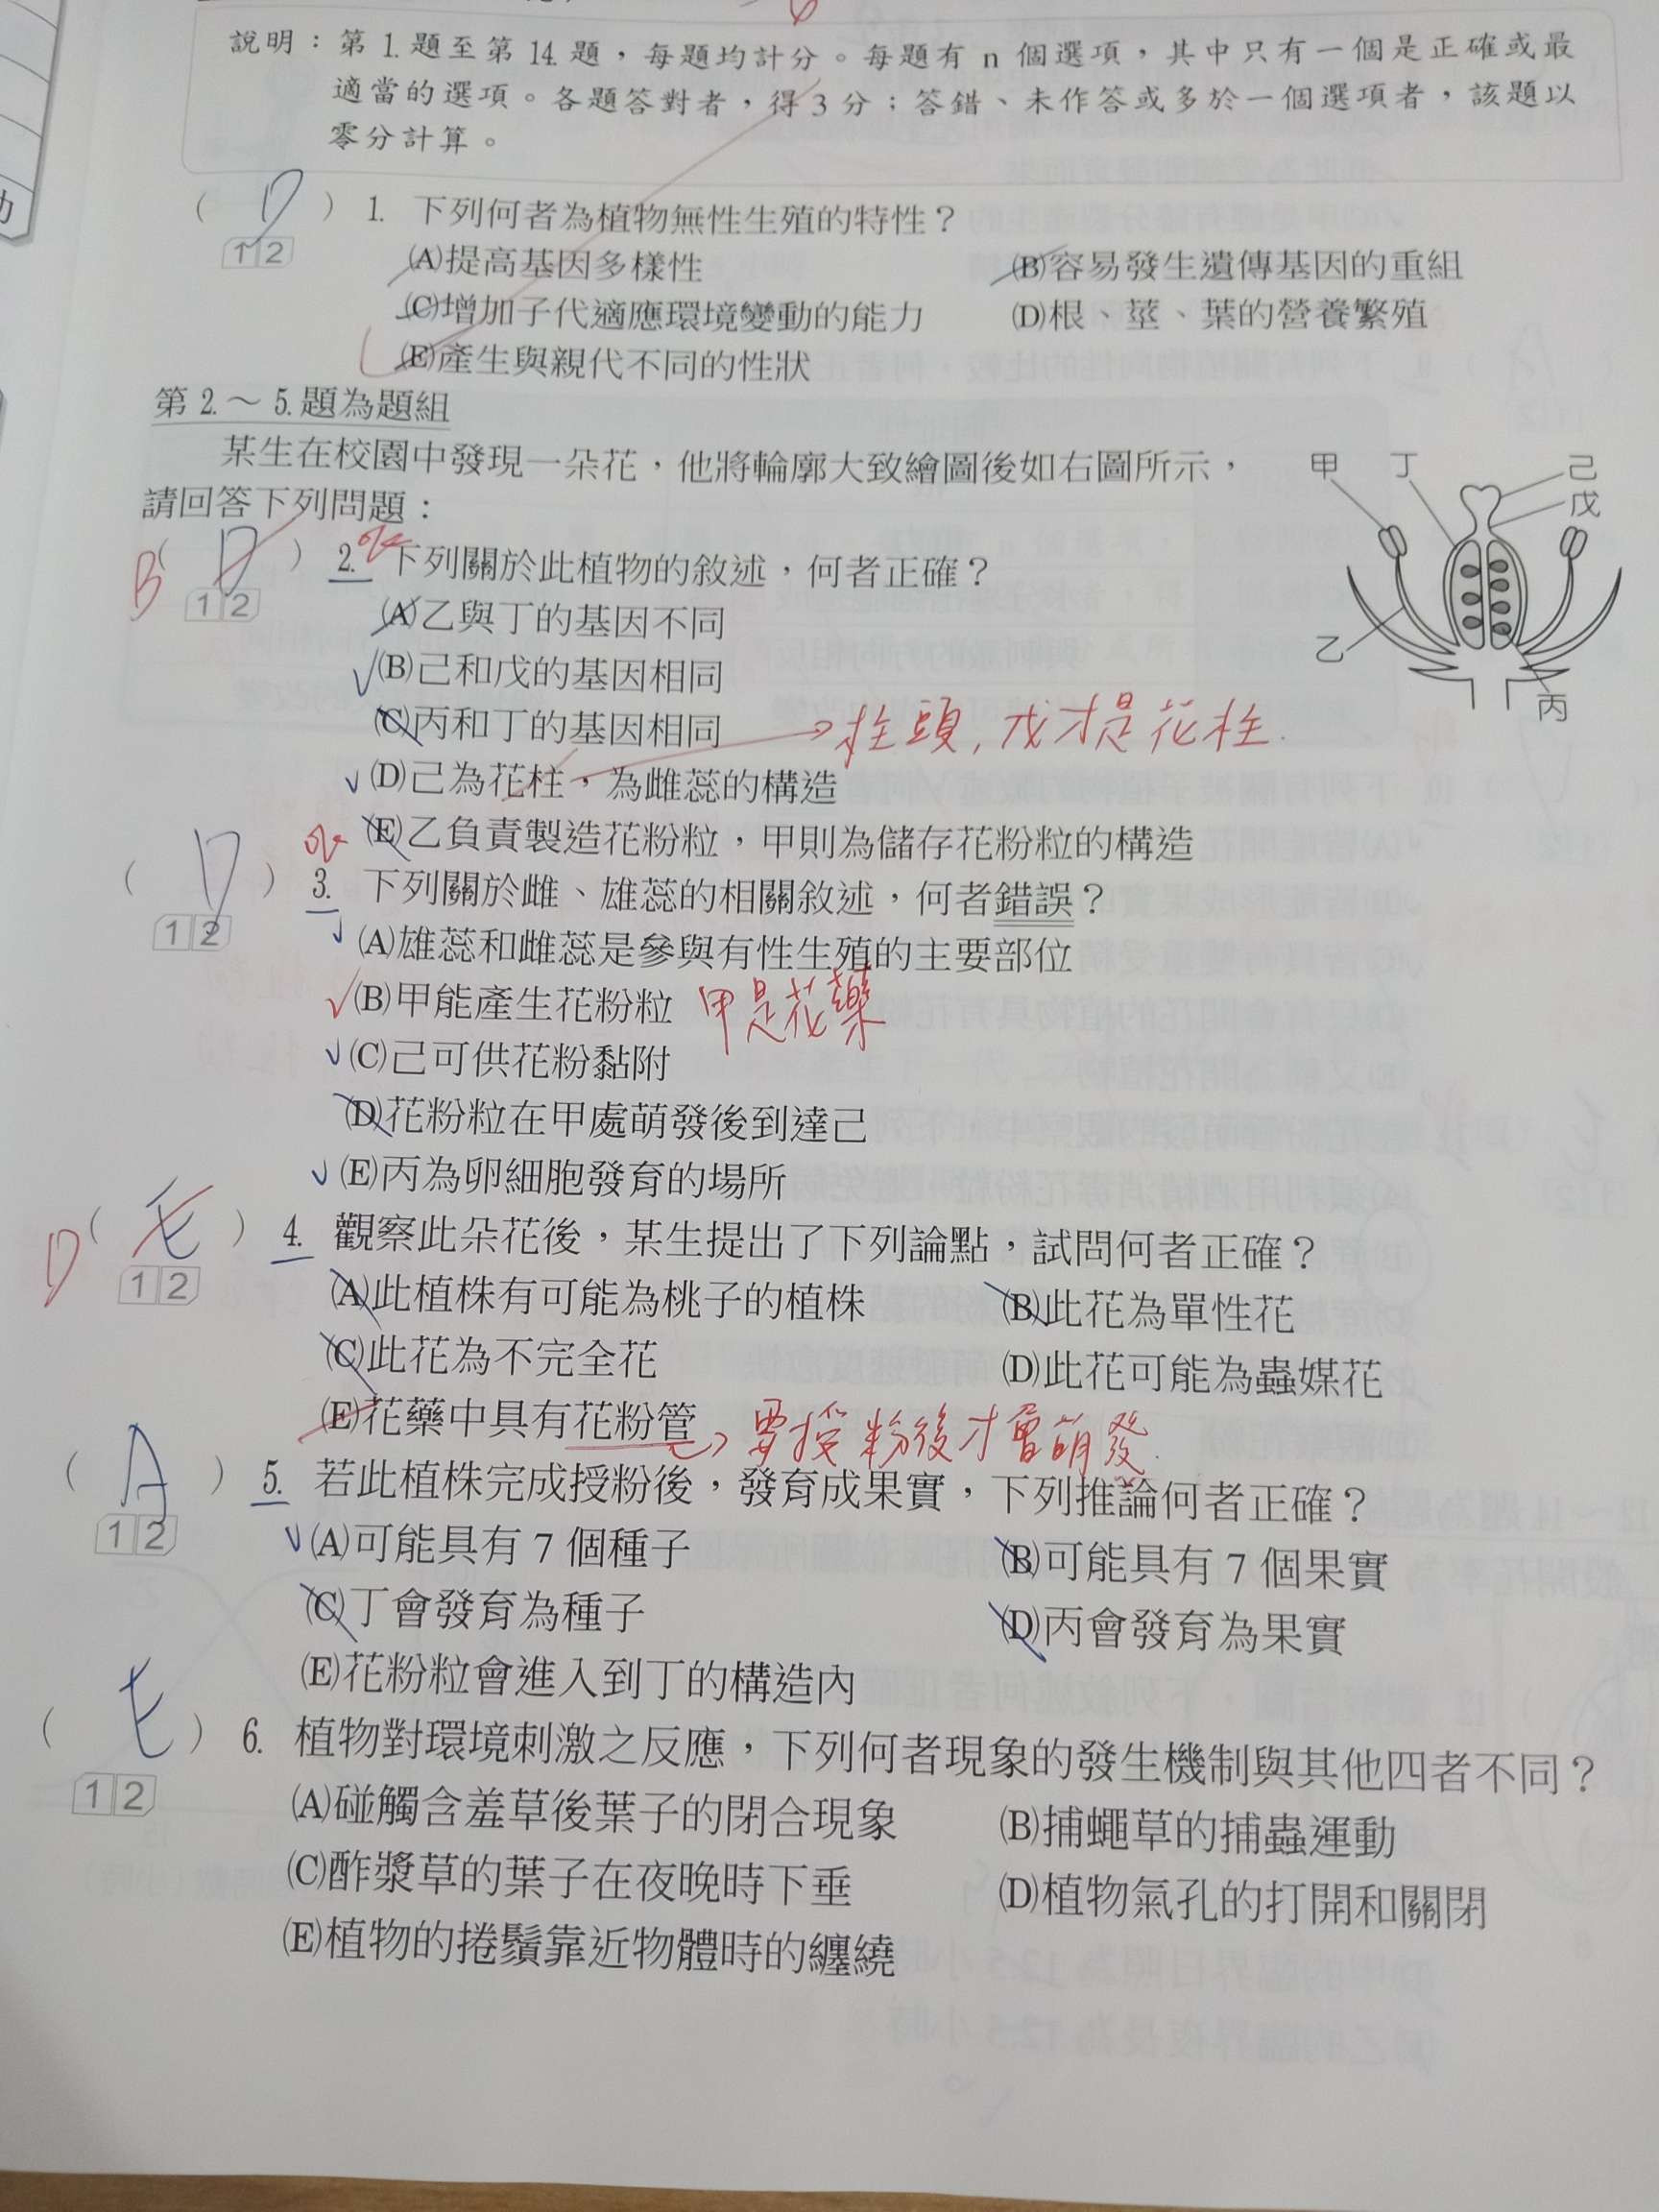 說明：第 1. 題至第 14. 題，每題均計分。每題有 n 個選項，其中只有一個是正確或最
適當的選項。各題答對者，得 3 分；答錯、未作答或多於一個選項者，該題以
零分計算。
( D ) 1. 下列何者為植物無性生殖的特性？
12
(A)提高基因多樣性 (B)容易發生遺傳基因的重組
(C)增加子代適應環境變動的能力 (D)根、莖、葉的營養繁殖
(E)產生與親代不同的性狀
第 2.～ 5. 題為題組
某生在校園中發現一朵花，他將輪廓大致繪圖後如右圖所示，
請回答下列問題：
甲 丁 己
戊
乙
丙
B ( D ) 2. 下列關於此植物的敘述，何者正確？
12
(A)乙與丁的基因不同
(B)己和戊的基因相同
(C)丙和丁的基因相同
柱頭，戊才是花柱.
(D)己為花柱，為雌蕊的構造
(E)乙負責製造花粉粒，甲則為儲存花粉粒的構造
( D ) 3. 下列關於雌、雄蕊的相關敘述，何者錯誤？
12
(A)雄蕊和雌蕊是參與有性生殖的主要部位
(B)甲能產生花粉粒 甲是花藥
(C)己可供花粉黏附
(D)花粉粒在甲處萌發後到達己
(E)丙為卵細胞發育的場所
D ( E ) 4. 觀察此朵花後，某生提出了下列論點，試問何者正確？
12
(A)此植株有可能為桃子的植株 (B)此花為單性花
(C)此花為不完全花 (D)此花可能為蟲媒花
(E)花藥中具有花粉管 要授粉後才會萌發.
( A ) 5. 若此植株完成授粉後，發育成果實，下列推論何者正確？
12
(A)可能具有 7 個種子 (B)可能具有 7 個果實
(C)丁會發育為種子 (D)丙會發育為果實
(E)花粉粒會進入到丁的構造內
( E ) 6. 植物對環境刺激之反應，下列何者現象的發生機制與其他四者不同？
12
(A)碰觸含羞草後葉子的閉合現象 (B)捕蠅草的捕蟲運動
(C)酢漿草的葉子在夜晚時下垂 (D)植物氣孔的打開和關閉
(E)植物的捲鬚靠近物體時的纏繞